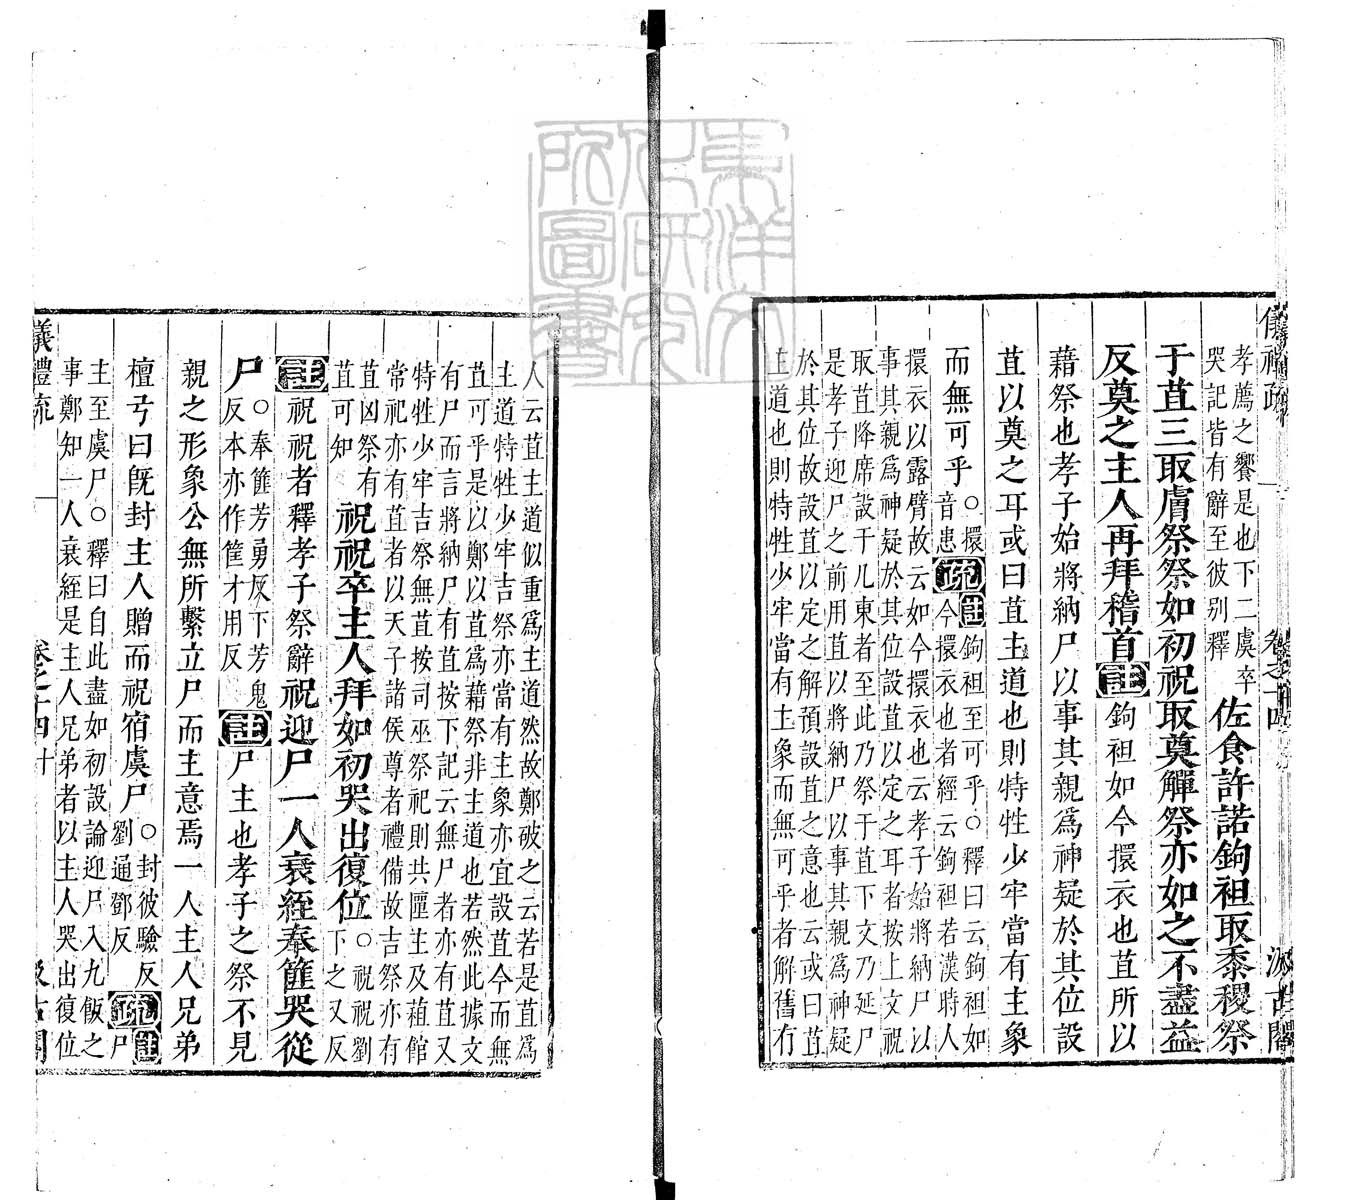 儀禮疏 卷之十四 汲古閣
孝薦之饗是也下二虞卒
哭記皆有辭至彼別釋
佐食許諾鉤袒取黍稷祭
于苴三取膚祭祭如初祝取奠觶祭亦如之不盡益
反奠之主人再拜稽首註鉤袒如今擐衣也苴所以
藉祭也孝子始將納尸以事其親爲神疑於其位設
苴以奠之耳或曰苴主道也則特牲少牢當有主象
而無可乎
○擐
音患
疏
註鉤袒至可乎○釋曰云鉤袒如
今擐衣也者經云鉤袒若漢時人
擐衣以露臂故云如今擐衣也云孝子始將納尸以
事其親爲神疑於其位設苴以定之耳者按上文祝
取苴降席設于几東者至此乃祭于苴下文乃延尸
是孝子迎尸之前用苴以將納尸以事其親爲神疑
於其位故設苴以定之解預設苴之意也云或曰苴
主道也則特牲少牢當有主象而無可乎者解舊有
人云苴主道似重爲主道然故鄭破之云若是苴爲
主道特牲少牢吉祭亦當有主象亦宜設苴今而無
苴可乎是以鄭以苴爲藉祭非主道也若然此據文
有尸而言將納尸有苴按下記云無尸者亦有苴又
特牲少牢吉祭無苴按司巫祭祀則共匰主及蒩館
常祀亦有苴者以天子諸侯尊者禮備故吉祭亦有
苴凶祭有
苴可知
祝祝卒主人拜如初哭出復位
○祝祝劉
下之又反
註祝祝者釋孝子祭辭祝迎尸一人衰絰奉篚哭從
尸
○奉篚芳勇反下芳鬼
反本亦作筐才用反
註尸主也孝子之祭不見
親之形象公無所繫立尸而主意焉一人主人兄弟
檀弓曰旣封主人贈而祝宿虞尸
○封彼驗反
劉逋鄧反
疏
註尸
主至虞尸○釋曰自此盡如初設論迎尸入九飯之
事鄭知一人衰絰是主人兄弟者以主人哭出復位
儀禮疏 卷之十四 十 汲古閣